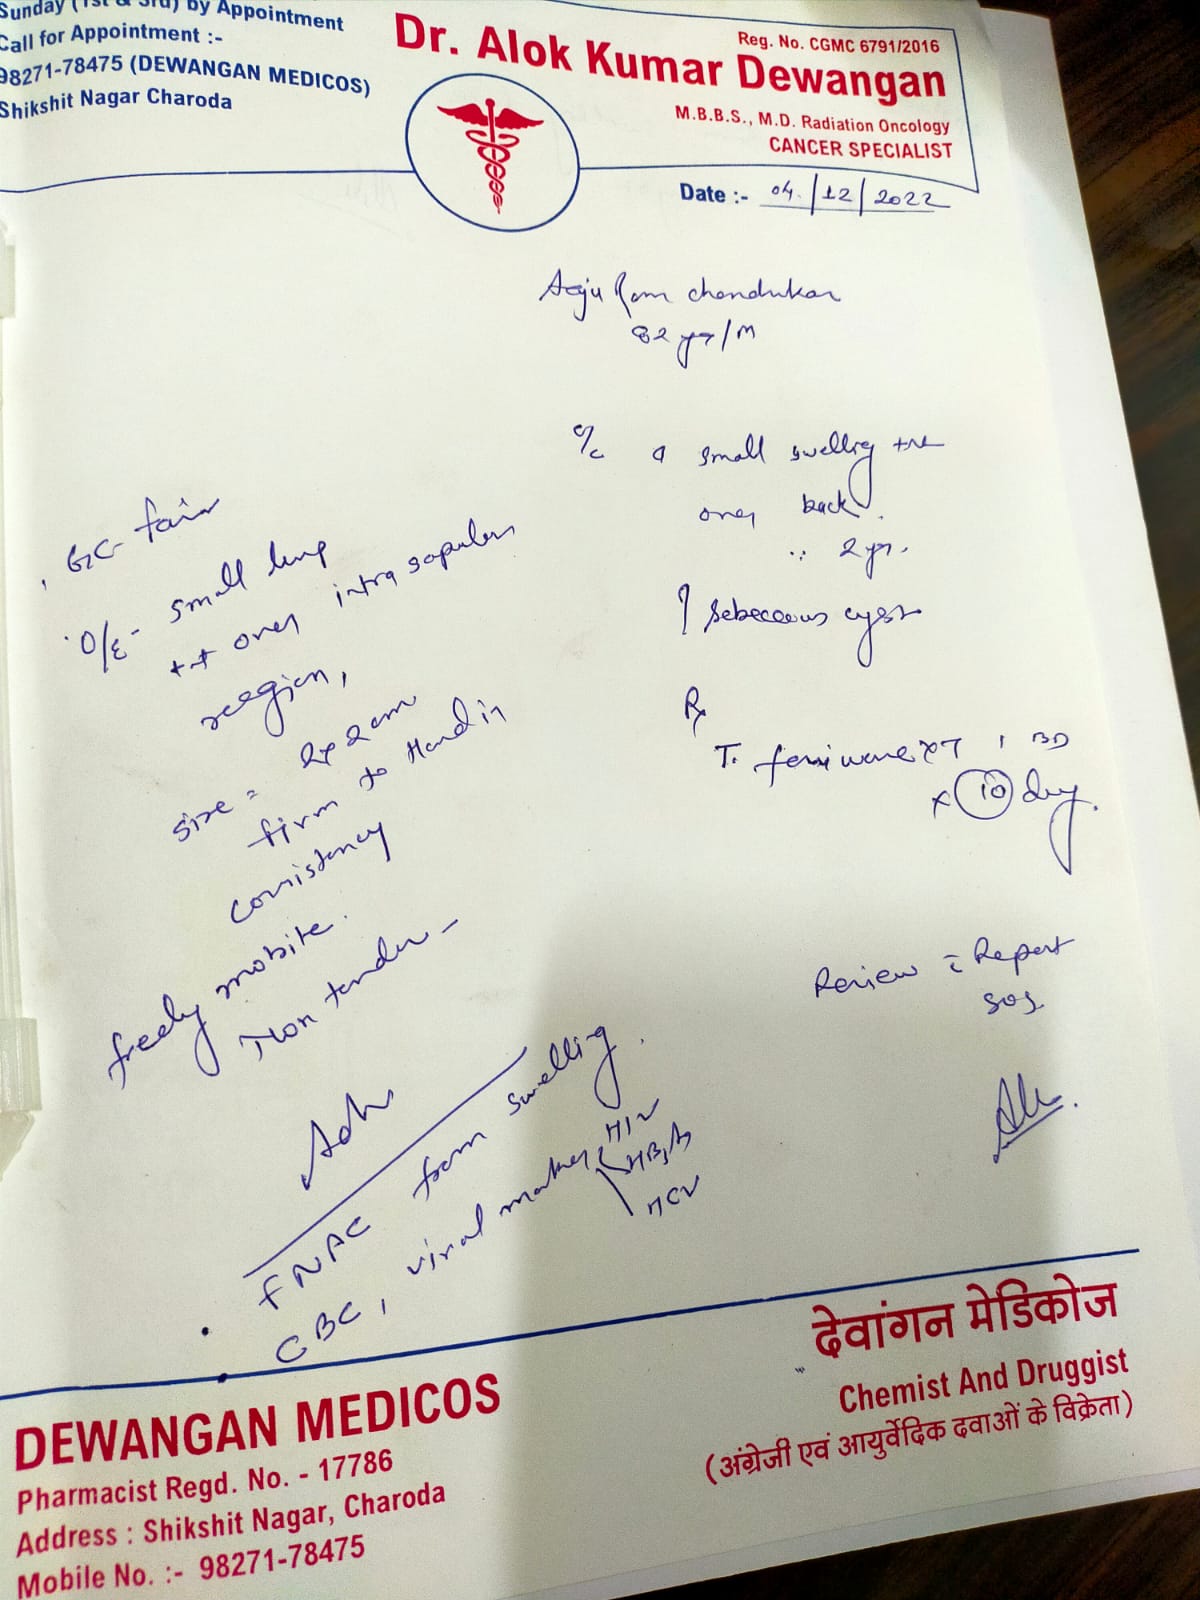 Sunday (1st & 3rd) by Appointment
Call for Appointment :-
98271-78475 (DEWANGAN MEDICOS)
Shikshit Nagar Charoda
Reg. No. CGMC 6791/2016
Dr. Alok Kumar Dewangan
M.B.B.S., M.D. Radiation Oncology
CANCER SPECIALIST
Date :- 04/12/2022
Ram
82 yr/M
c/c a small swelling +ve
over back.
2 yr.
? Sebeceous cyst
Rx
T. 1 BD
x 10 day.
Review c Report
SOS
. GC- fair
. O/E- small lump
++ over
reegion,
size = 2x2cm
firm to Hard in
consistency
freely mobile.
Non tender -
Adv
. FNAC from swelling.
. CBC, viral marker HIV
HCV
DEWANGAN MEDICOS
Pharmacist Regd. No. - 17786
Address : Shikshit Nagar, Charoda
Mobile No. :- 98271-78475
देवांगन मेडिकोज
Chemist And Druggist
(अंग्रेजी एवं आयुर्वेदिक दवाओं के विक्रेता)